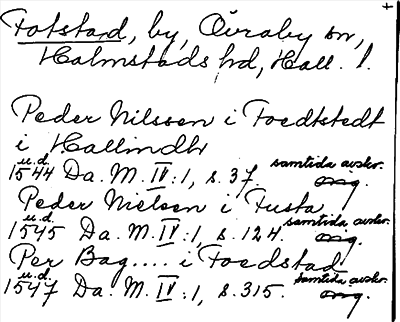 Fotstad, by, Övraby sn,
Halmstads hd, Hall. l.
Peder Nilssen i Foedtstedt
i Hallindh
u.d.
1544 Da. M. IV:1, s. 37. samtida avskr.
orig.
Peder Nielsen i Fusta
u.d.
1545 Da. M. IV:1, s. 124. samtida avskr.
orig.
Per Bag.... i Foedstad
u.d.
1547 Da. M. IV:1, s. 315. samtida avskr.
orig.